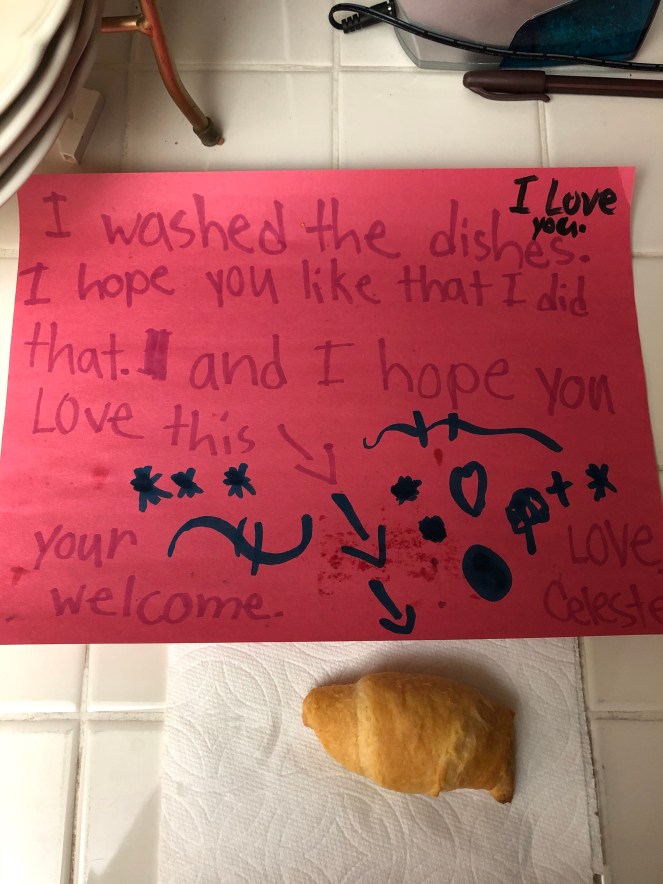 I Love
you.
I washed the dishes.
I hope you like that I did
that. and I hope you
Love this
your
welcome.
Love
Celeste